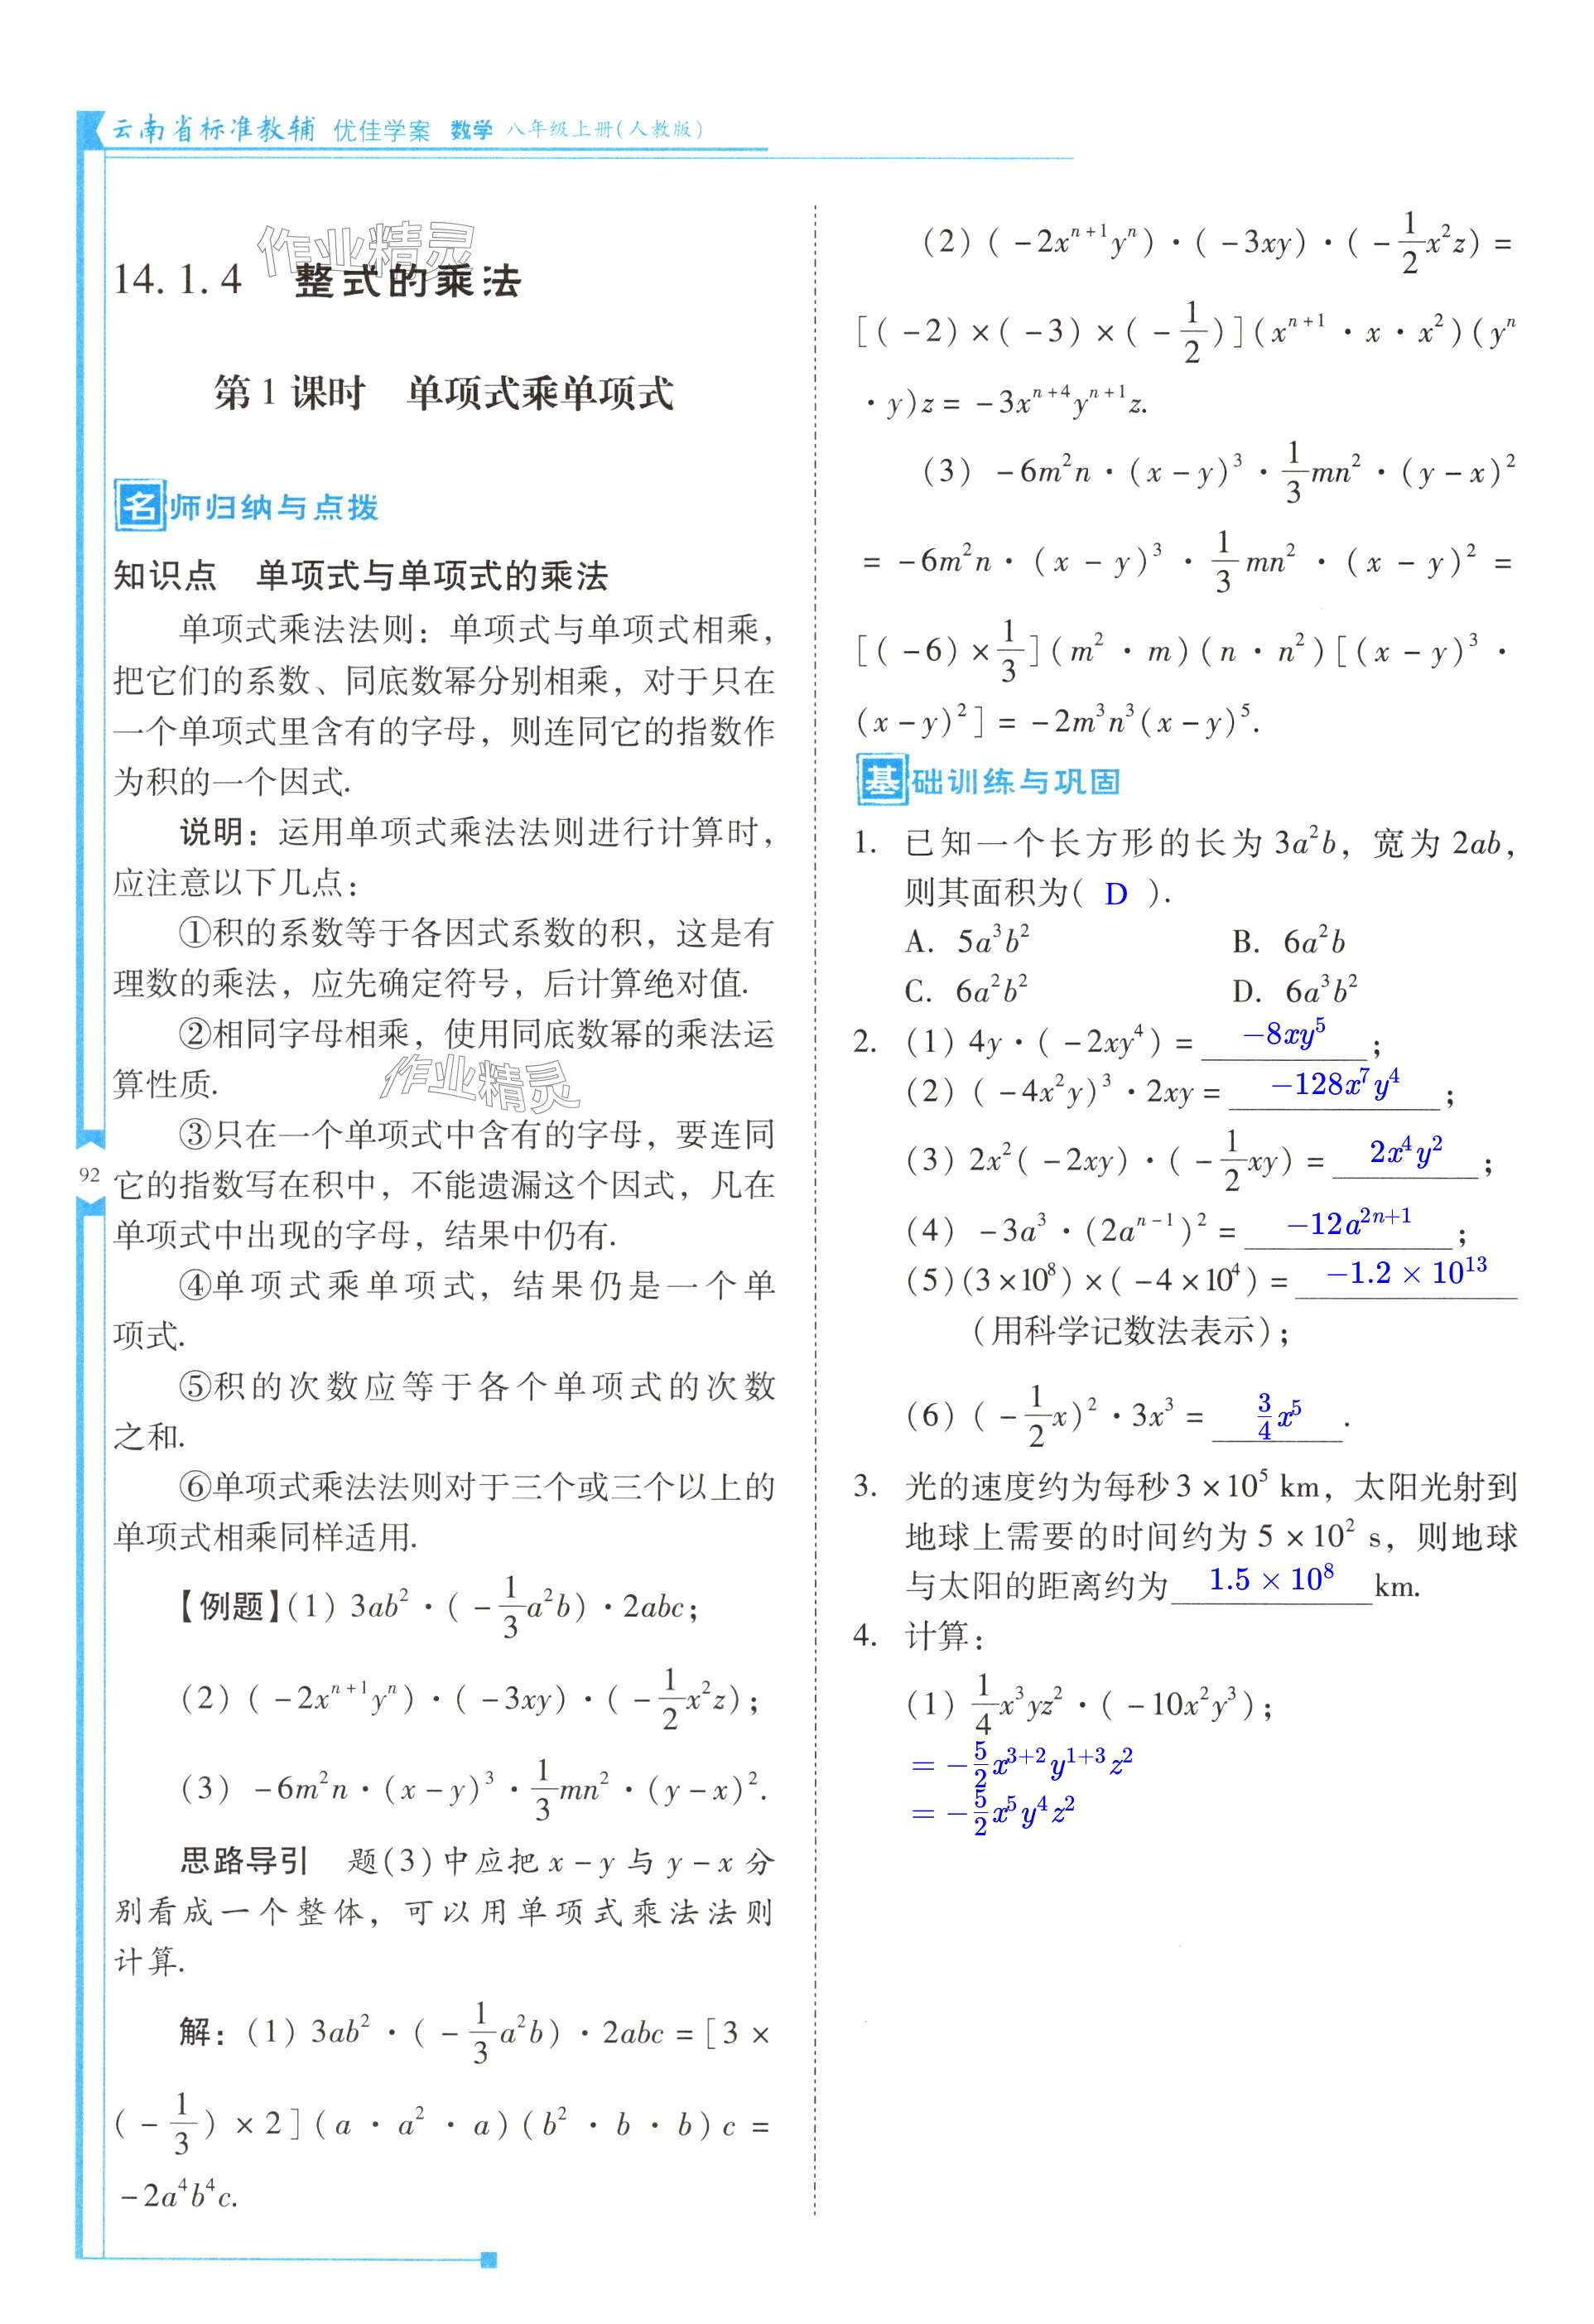 云南省标准教辅 优佳学案 数学 八年级上册(人教版)
作业精灵
14.1.4 整式的乘法
第1课时 单项式乘单项式
名师归纳与点拨
知识点 单项式与单项式的乘法
单项式乘法法则：单项式与单项式相乘，
把它们的系数、同底数幂分别相乘，对于只在
一个单项式里含有的字母，则连同它的指数作
为积的一个因式.
说明：运用单项式乘法法则进行计算时，
应注意以下几点：
①积的系数等于各因式系数的积，这是有
理数的乘法，应先确定符号，后计算绝对值.
②相同字母相乘，使用同底数幂的乘法运
算性质.
作业精灵
③只在一个单项式中含有的字母，要连同
它的指数写在积中，不能遗漏这个因式，凡在
单项式中出现的字母，结果中仍有.
④单项式乘单项式，结果仍是一个单
项式.
⑤积的次数应等于各个单项式的次数
之和.
⑥单项式乘法法则对于三个或三个以上的
单项式相乘同样适用.
【例题】(1) 3ab²·(-1/3a²b)·2abc；
(2) (-2xⁿ⁺¹yⁿ)·(-3xy)·(-1/2x²z)；
(3) -6m²n·(x-y)³·1/3mn²·(y-x)².
思路导引 题(3)中应把x-y与y-x分
别看成一个整体，可以用单项式乘法法则
计算.
解：(1) 3ab²·(-1/3a²b)·2abc=[3×
(-1/3)×2](a·a²·a)(b²·b·b)c=
-2a⁴b⁴c.
92
(2) (-2xⁿ⁺¹yⁿ)·(-3xy)·(-1/2x²z)=
[(-2)×(-3)×(-1/2)](xⁿ⁺¹·x·x²)(yⁿ
·y)z=-3xⁿ⁺⁴yⁿ⁺¹z.
(3) -6m²n·(x-y)³·1/3mn²·(y-x)²
=-6m²n·(x-y)³·1/3mn²·(x-y)²=
[(-6)×1/3](m²·m)(n·n²)[(x-y)³·
(x-y)²]=-2m³n³(x-y)⁵.
基础训练与巩固
1. 已知一个长方形的长为3a²b，宽为2ab，
则其面积为( D ).
A. 5a³b² B. 6a²b
C. 6a²b² D. 6a³b²
2. (1) 4y·(-2xy⁴)= -8xy⁵ ；
(2) (-4x²y)³·2xy= -128x⁷y⁴ ；
(3) 2x²(-2xy)·(-1/2xy)= 2x⁴y² ；
(4) -3a³·(2aⁿ⁻¹)²= -12a²ⁿ⁺¹ ；
(5) (3×10⁸)×(-4×10⁴)= -1.2×10¹³
(用科学记数法表示)；
(6) (-1/2x)²·3x³= 3/4x⁵ .
3. 光的速度约为每秒3×10⁵ km，太阳光射到
地球上需要的时间约为5×10² s，则地球
与太阳的距离约为 1.5×10⁸ km.
4. 计算：
(1) 1/4x³yz²·(-10x²y³)；
=-5/2x³⁺²y¹⁺³z²
=-5/2x⁵y⁴z²